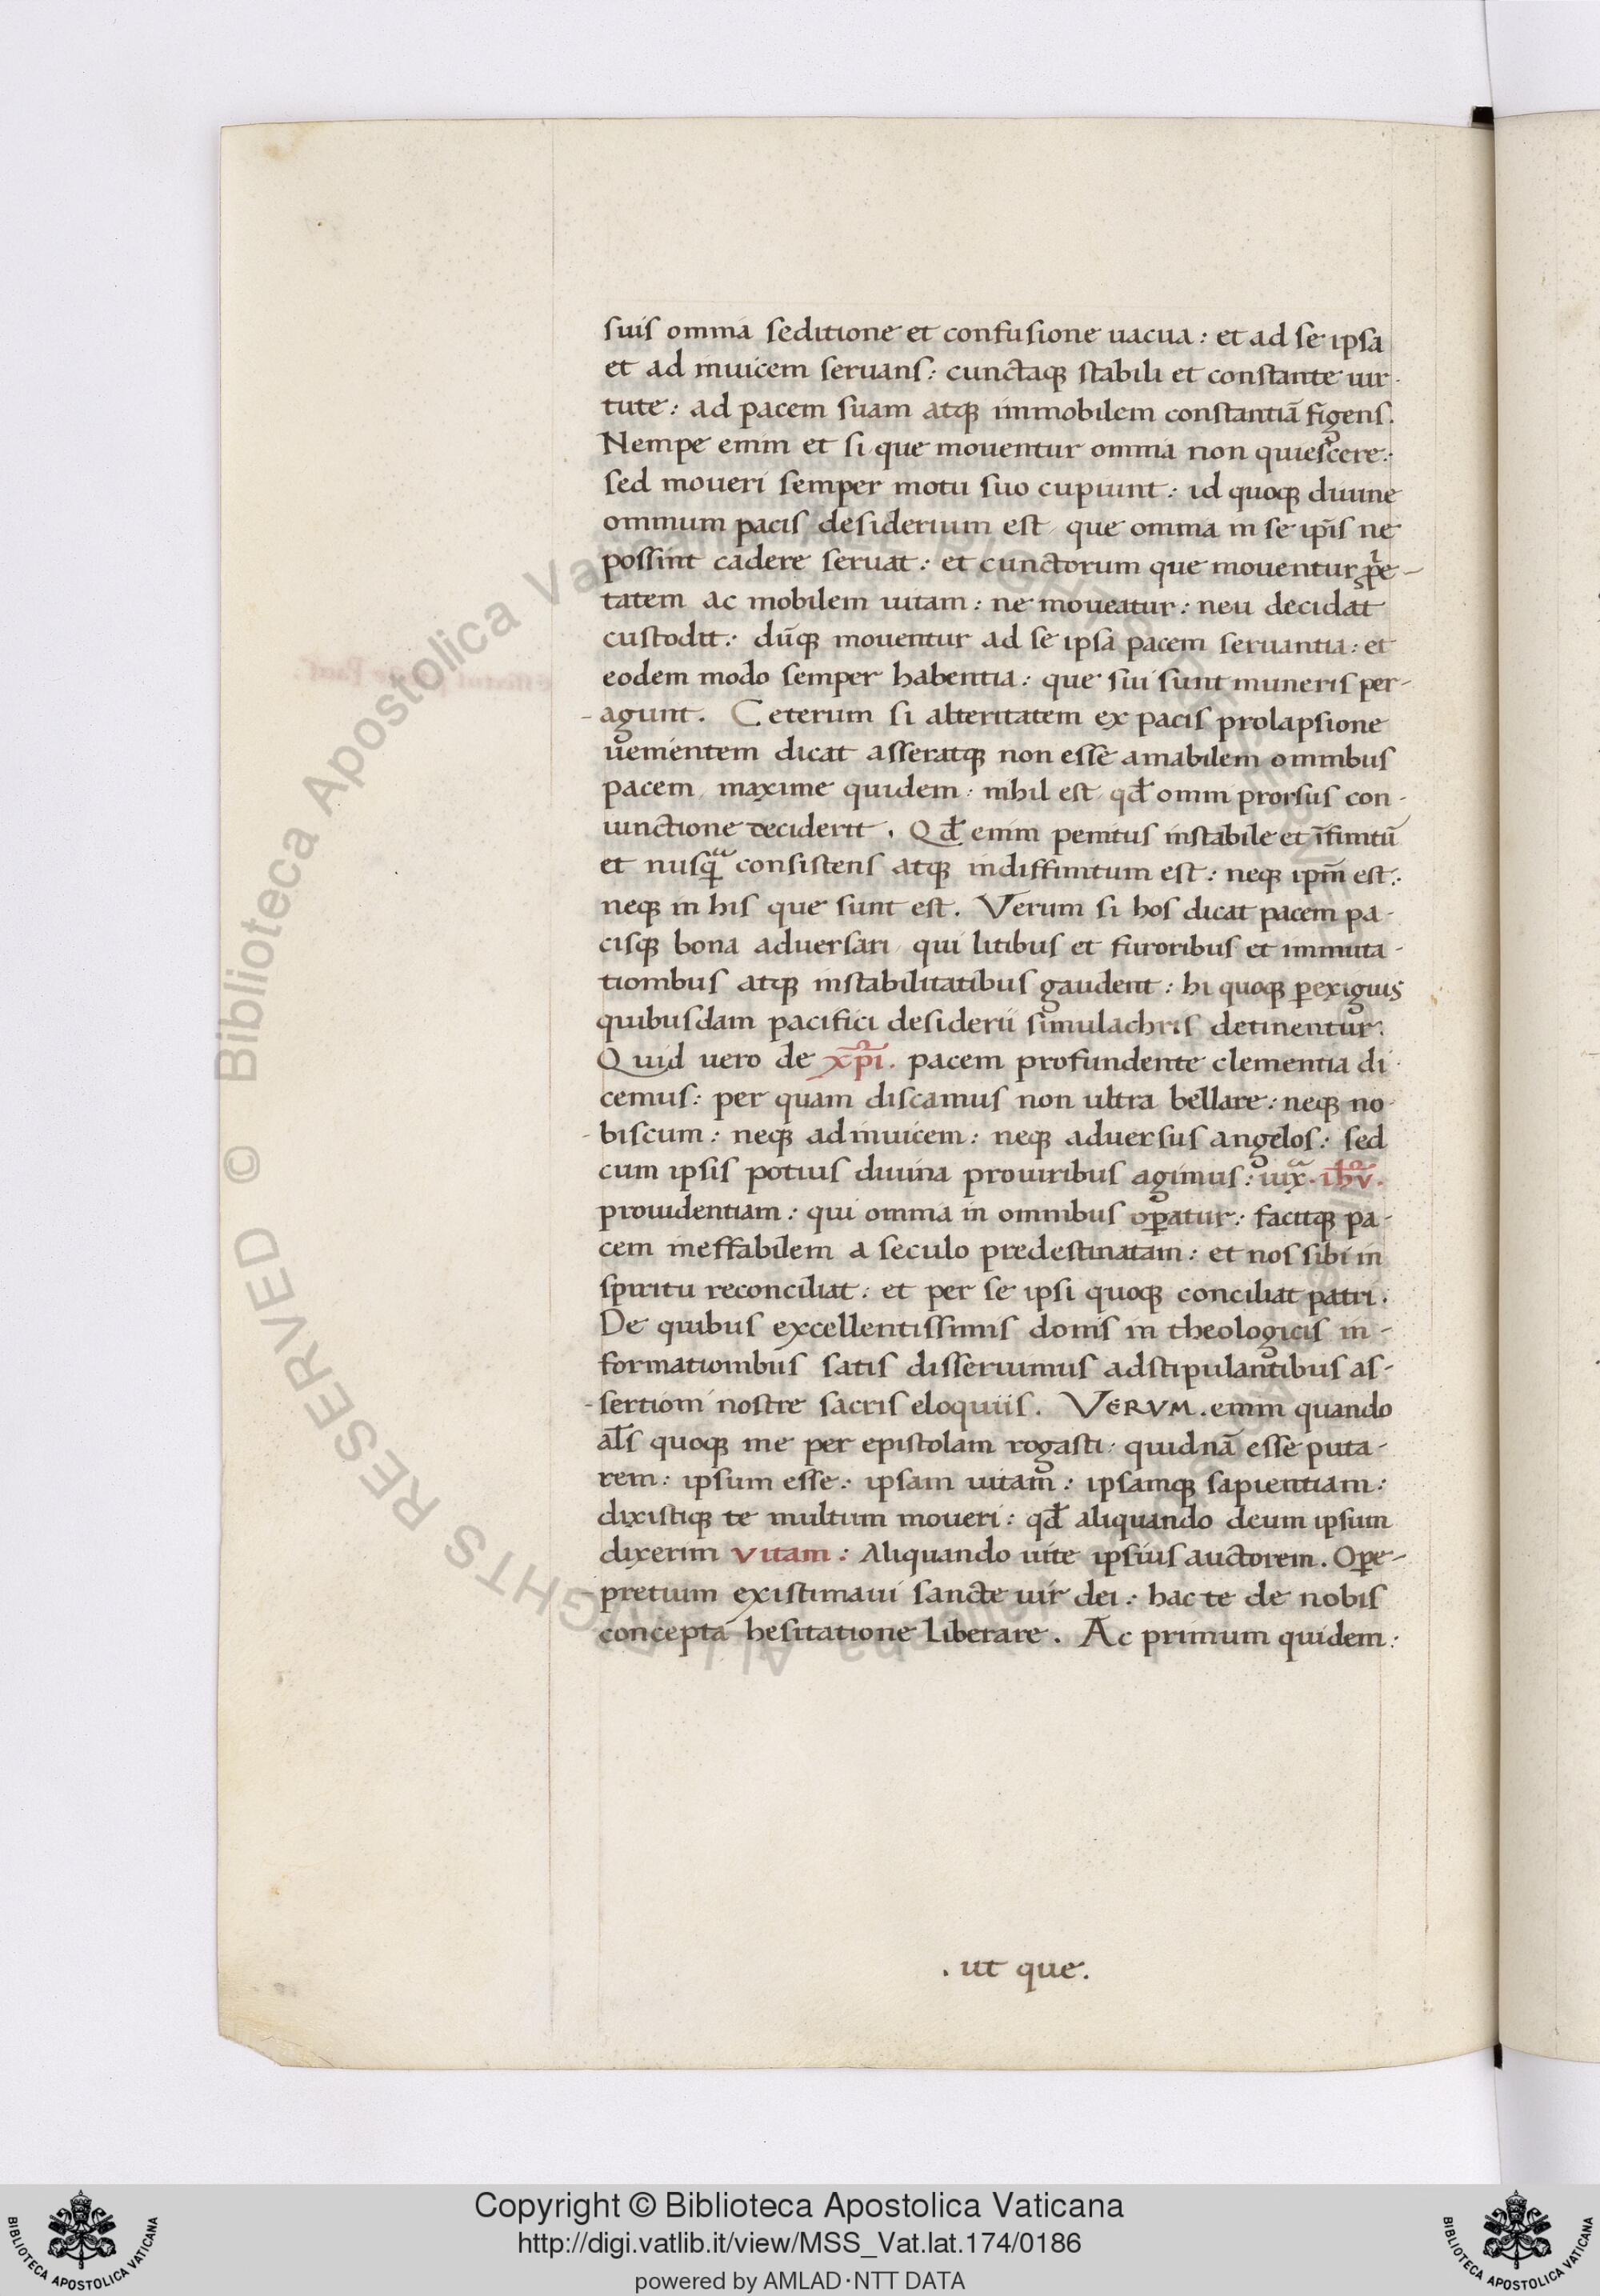 suis omnia seditione et confusione uacua: et ad se ipsa
et ad inuicem seruans: cunctaqꝫ stabili et constante uir-
tute: ad pacem suam atqꝫ immobilem constantiā figens.
Nempe enim et si que mouentur omnia non quiescere:
sed moueri semper motu suo cupiunt: id quoqꝫ diuine
omnium pacis desiderium est que omnia in se ip̄is ne
possint cadere seruat: et cunctorum que mouentur ꝓ̍e-
tatem ac mobilem uitam: ne moueatur: neu decidat
custodit: dūqꝫ mouentur ad se ipsa pacem seruantia: et
eodem modo semper habentia: que sui sunt muneris per-
-agunt. Ceterum si alteritatem ex pacis prolapsione
uenientem dicat asseratqꝫ non esse amabilem omnibus
pacem, maxime quidem: nihil est qđ omni prorsus con-
iunctione deciderit. Qđ enim penitus instabile et īfinitū
et nusqᷓ consistens atqꝫ indiffinitum est: neqꝫ ip̄m est:
neqꝫ in his que sunt est. Verum si hos dicat pacem pa-
cisqꝫ bona aduersari qui litibus et furoribus et immuta-
tionibus atqꝫ instabilitatibus gaudent: hi quoqꝫ ꝑexiguis
quibusdam pacifici desiderii simulachris detinentur:
Quid uero de xp̄i. pacem profundente clementia di-
cemus: per quam discamus non ultra bellare: neqꝫ no-
-biscum: neqꝫ ad inuicem: neqꝫ aduersus angelos: sed
cum ipsis potius diuina prouiribus agimus: iuxᷓ. ih̄v.
prouidentiam: qui omnia in omnibus oꝑatur: facitqꝫ pa-
cem ineffabilem a seculo predestinatam: et nos sibi in
spiritu reconciliat: et per se ipsi quoqꝫ conciliat patri.
De quibus excellentissimis donis in theologicis in-
formationibus satis disseruimus adstipulantibus as-
-sertioni nostre sacris eloquiis. VERVM. enim quando
al̄s quoqꝫ me per epistolam rogasti: quidnā esse puta-
rem: ipsum esse: ipsam uitam: ipsamqꝫ sapientiam:
dixistiqꝫ te multum moueri: qđ aliquando deum ipsum
dixerim vitam: Aliquando uite ipsius auctorem. Oꝑe-
-pretium existimaui sancte uir dei: hac te de nobis
concepta hesitatione Liberare. Ac primum quidem:
. ut que.
© Biblioteca Apostolica Vaticana
ALL RIGHTS RESERVED
Copyright © Biblioteca Apostolica Vaticana
http://digi.vatlib.it/view/MSS_Vat.lat.174/0186
powered by AMLAD·NTT DATA
BIBLIOTECA APOSTOLICA VATICANA
BIBLIOTECA APOSTOLICA VATICANA